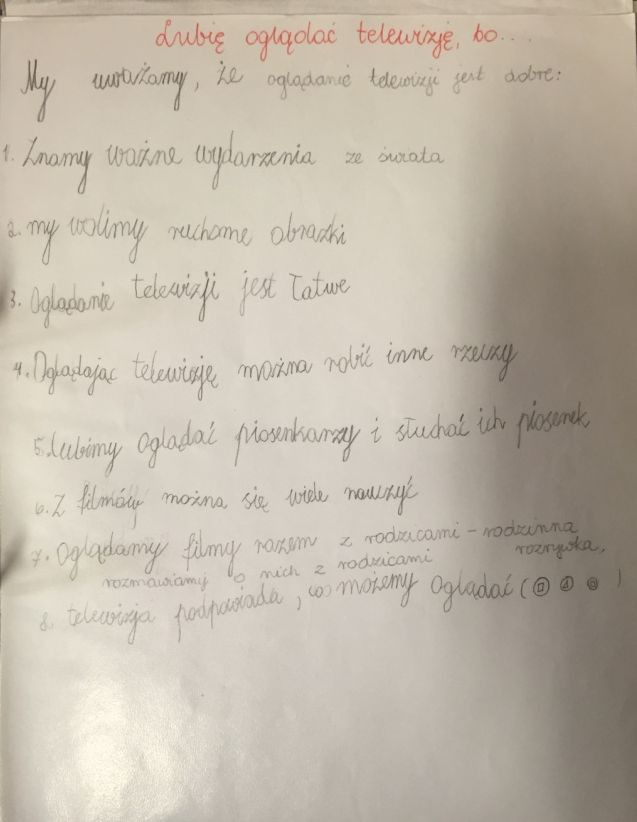 Lubię oglądać telewizję, bo...
My uważamy, że oglądanie telewizji jest dobre:
1. Znamy ważne wydarzenia ze świata
2. my wolimy ruchome obrazki
3. Oglądanie telewizji jest łatwe
4. Oglądając telewizję można robić inne rzeczy
5. Lubimy oglądać piosenkarzy i słuchać ich piosenek
6. Z filmów można się wiele nauczyć
7. Oglądamy filmy razem z rodzicami - rodzinna
rozrywka,
rozmawiamy o nich z rodzicami
8. telewizja podpowiada, co możemy oglądać ( )